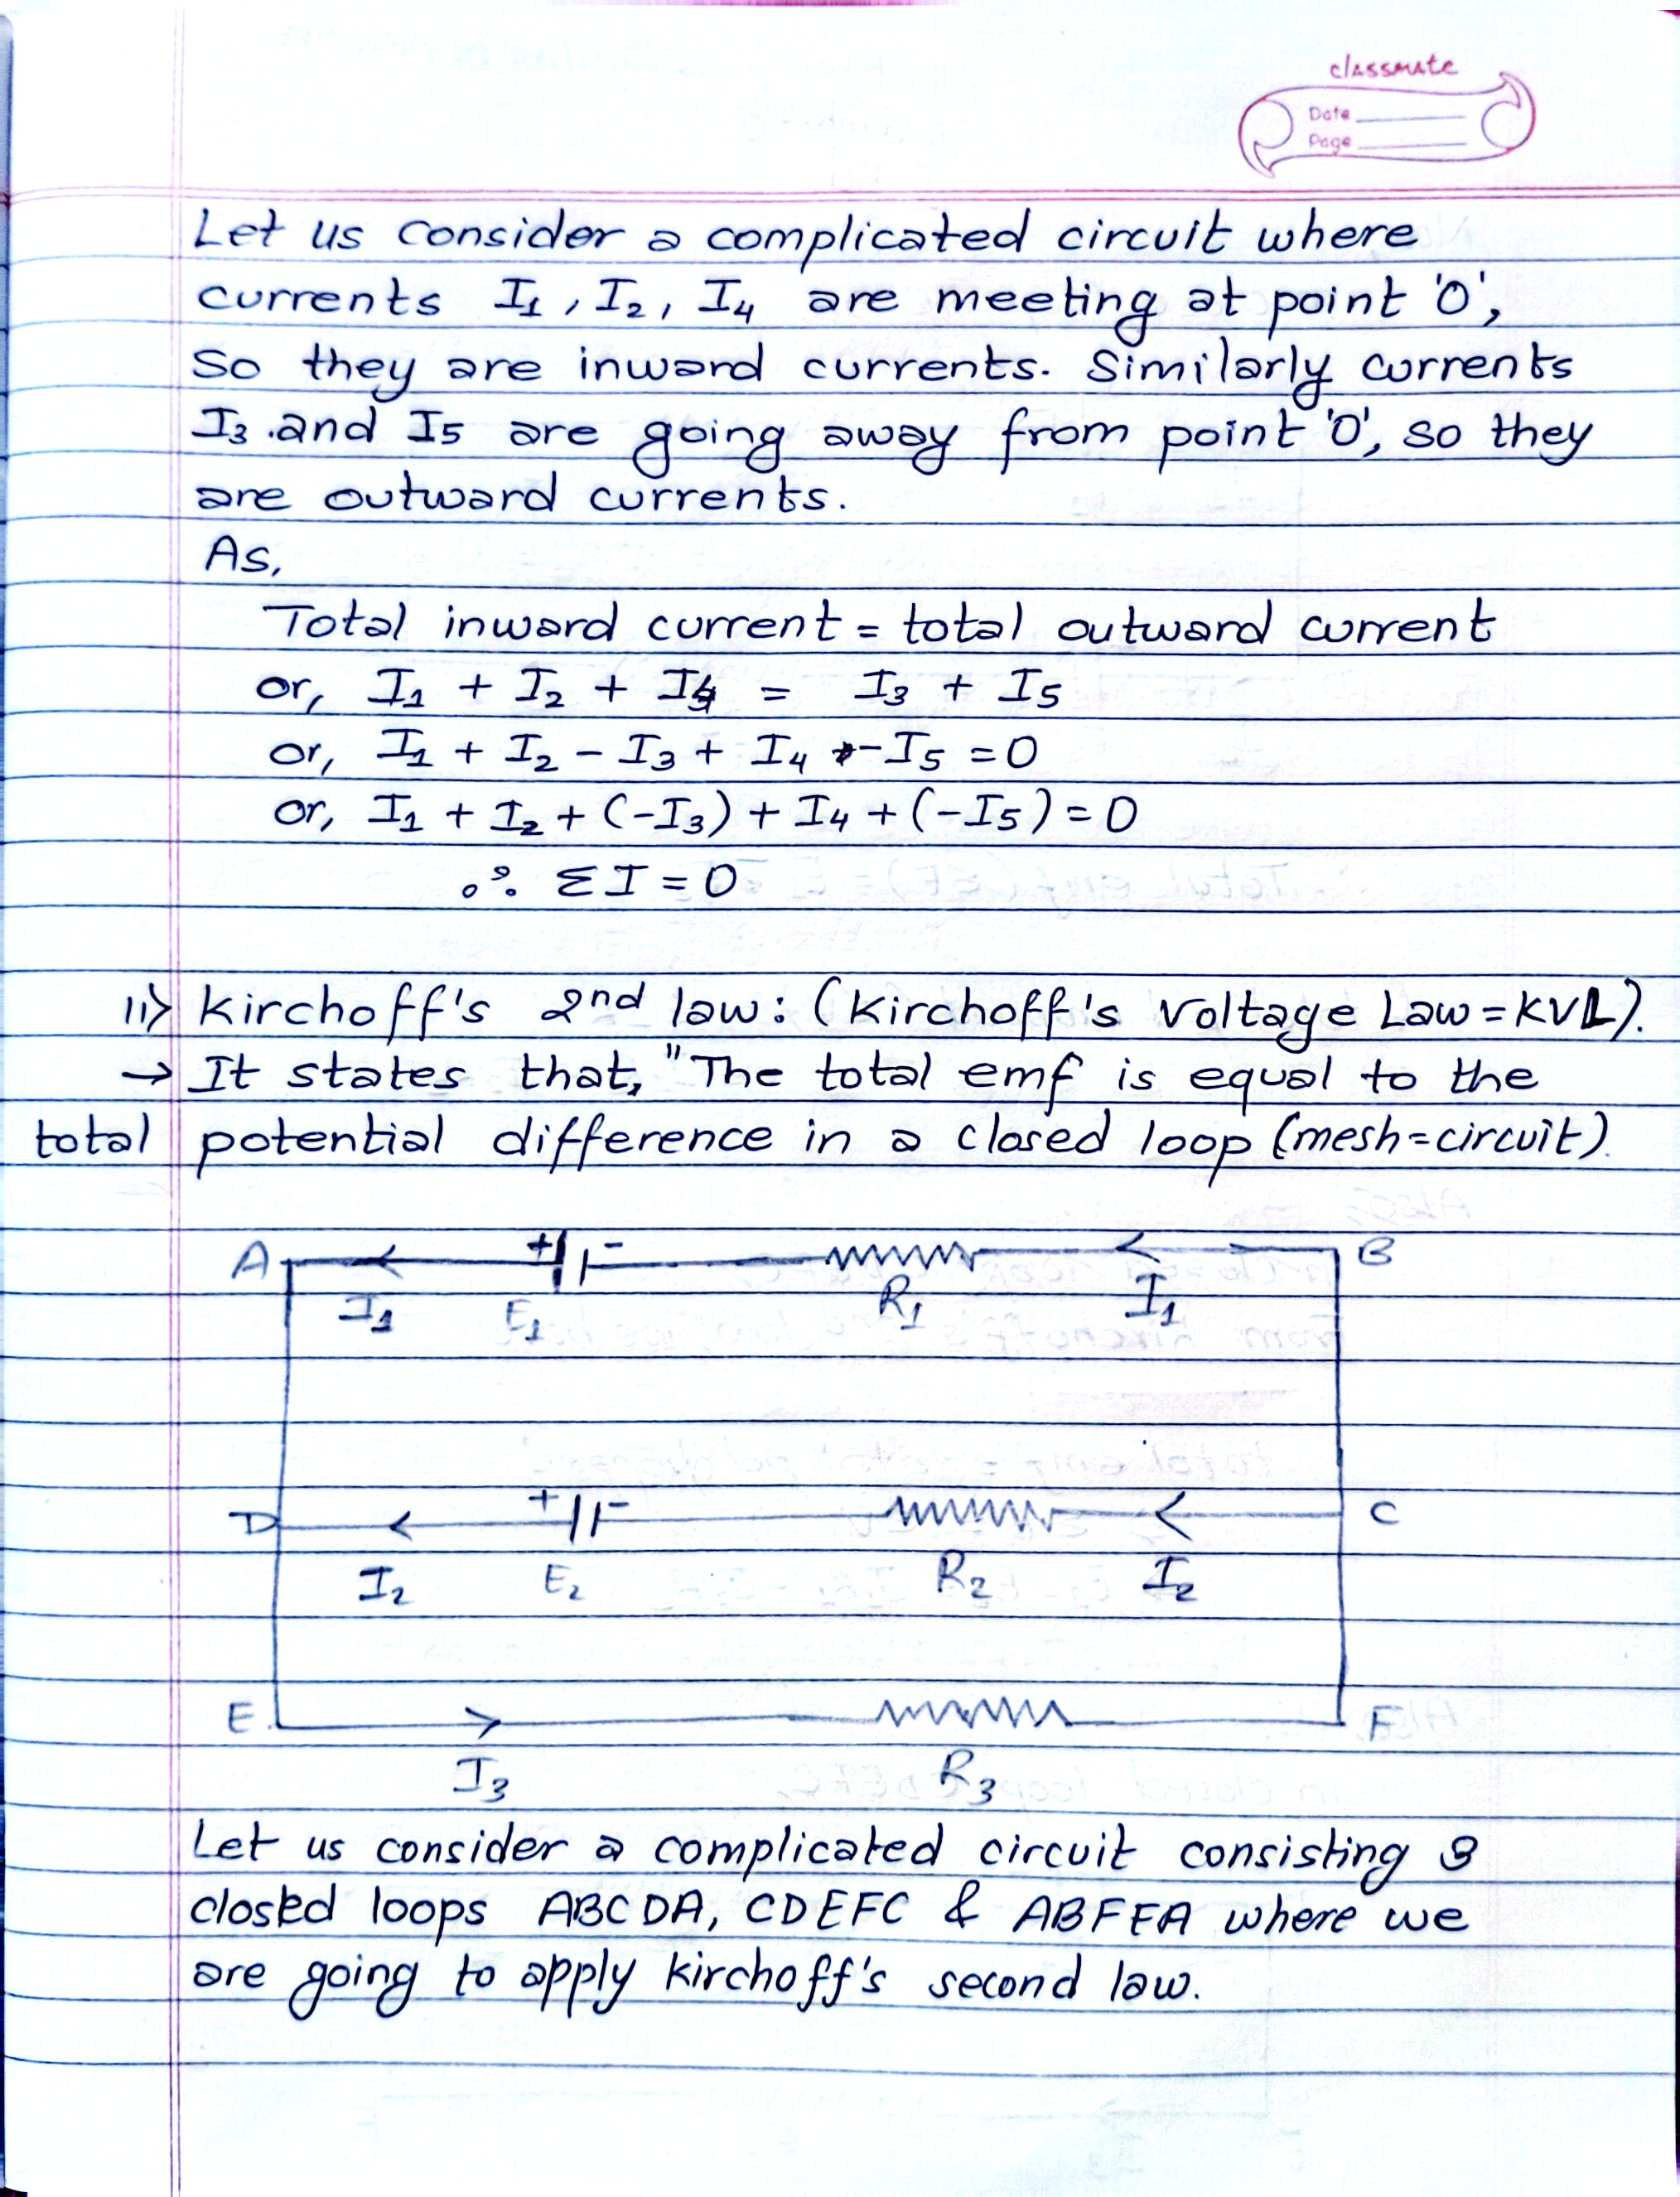 classmate
Date
Page
Let us consider a complicated circuit where
currents I₁, I₂, I₄ are meeting at point 'O',
So they are inward currents. Similarly currents
I₃ and I₅ are going away from point 'O', so they
are outward currents.
As,
Total inward current = total outward current
or, I₁ + I₂ + I₄ = I₃ + I₅
or, I₁ + I₂ - I₃ + I₄ - I₅ = 0
or, I₁ + I₂ + (-I₃) + I₄ + (-I₅) = 0
∴ ΣI = 0
ii) Kirchoff's 2nd law: (Kirchoff's Voltage Law = KVL).
→ It states that, "The total emf is equal to the
total potential difference in a closed loop (mesh = circuit).
A + - B
I₁ E₁ R₁ I₁
D + - C
I₂ E₂ R₂ I₂
E F
I₃ R₃
Let us consider a complicated circuit consisting 3
closed loops ABCDA, CDEFC & ABFEA where we
are going to apply kirchoff's second law.